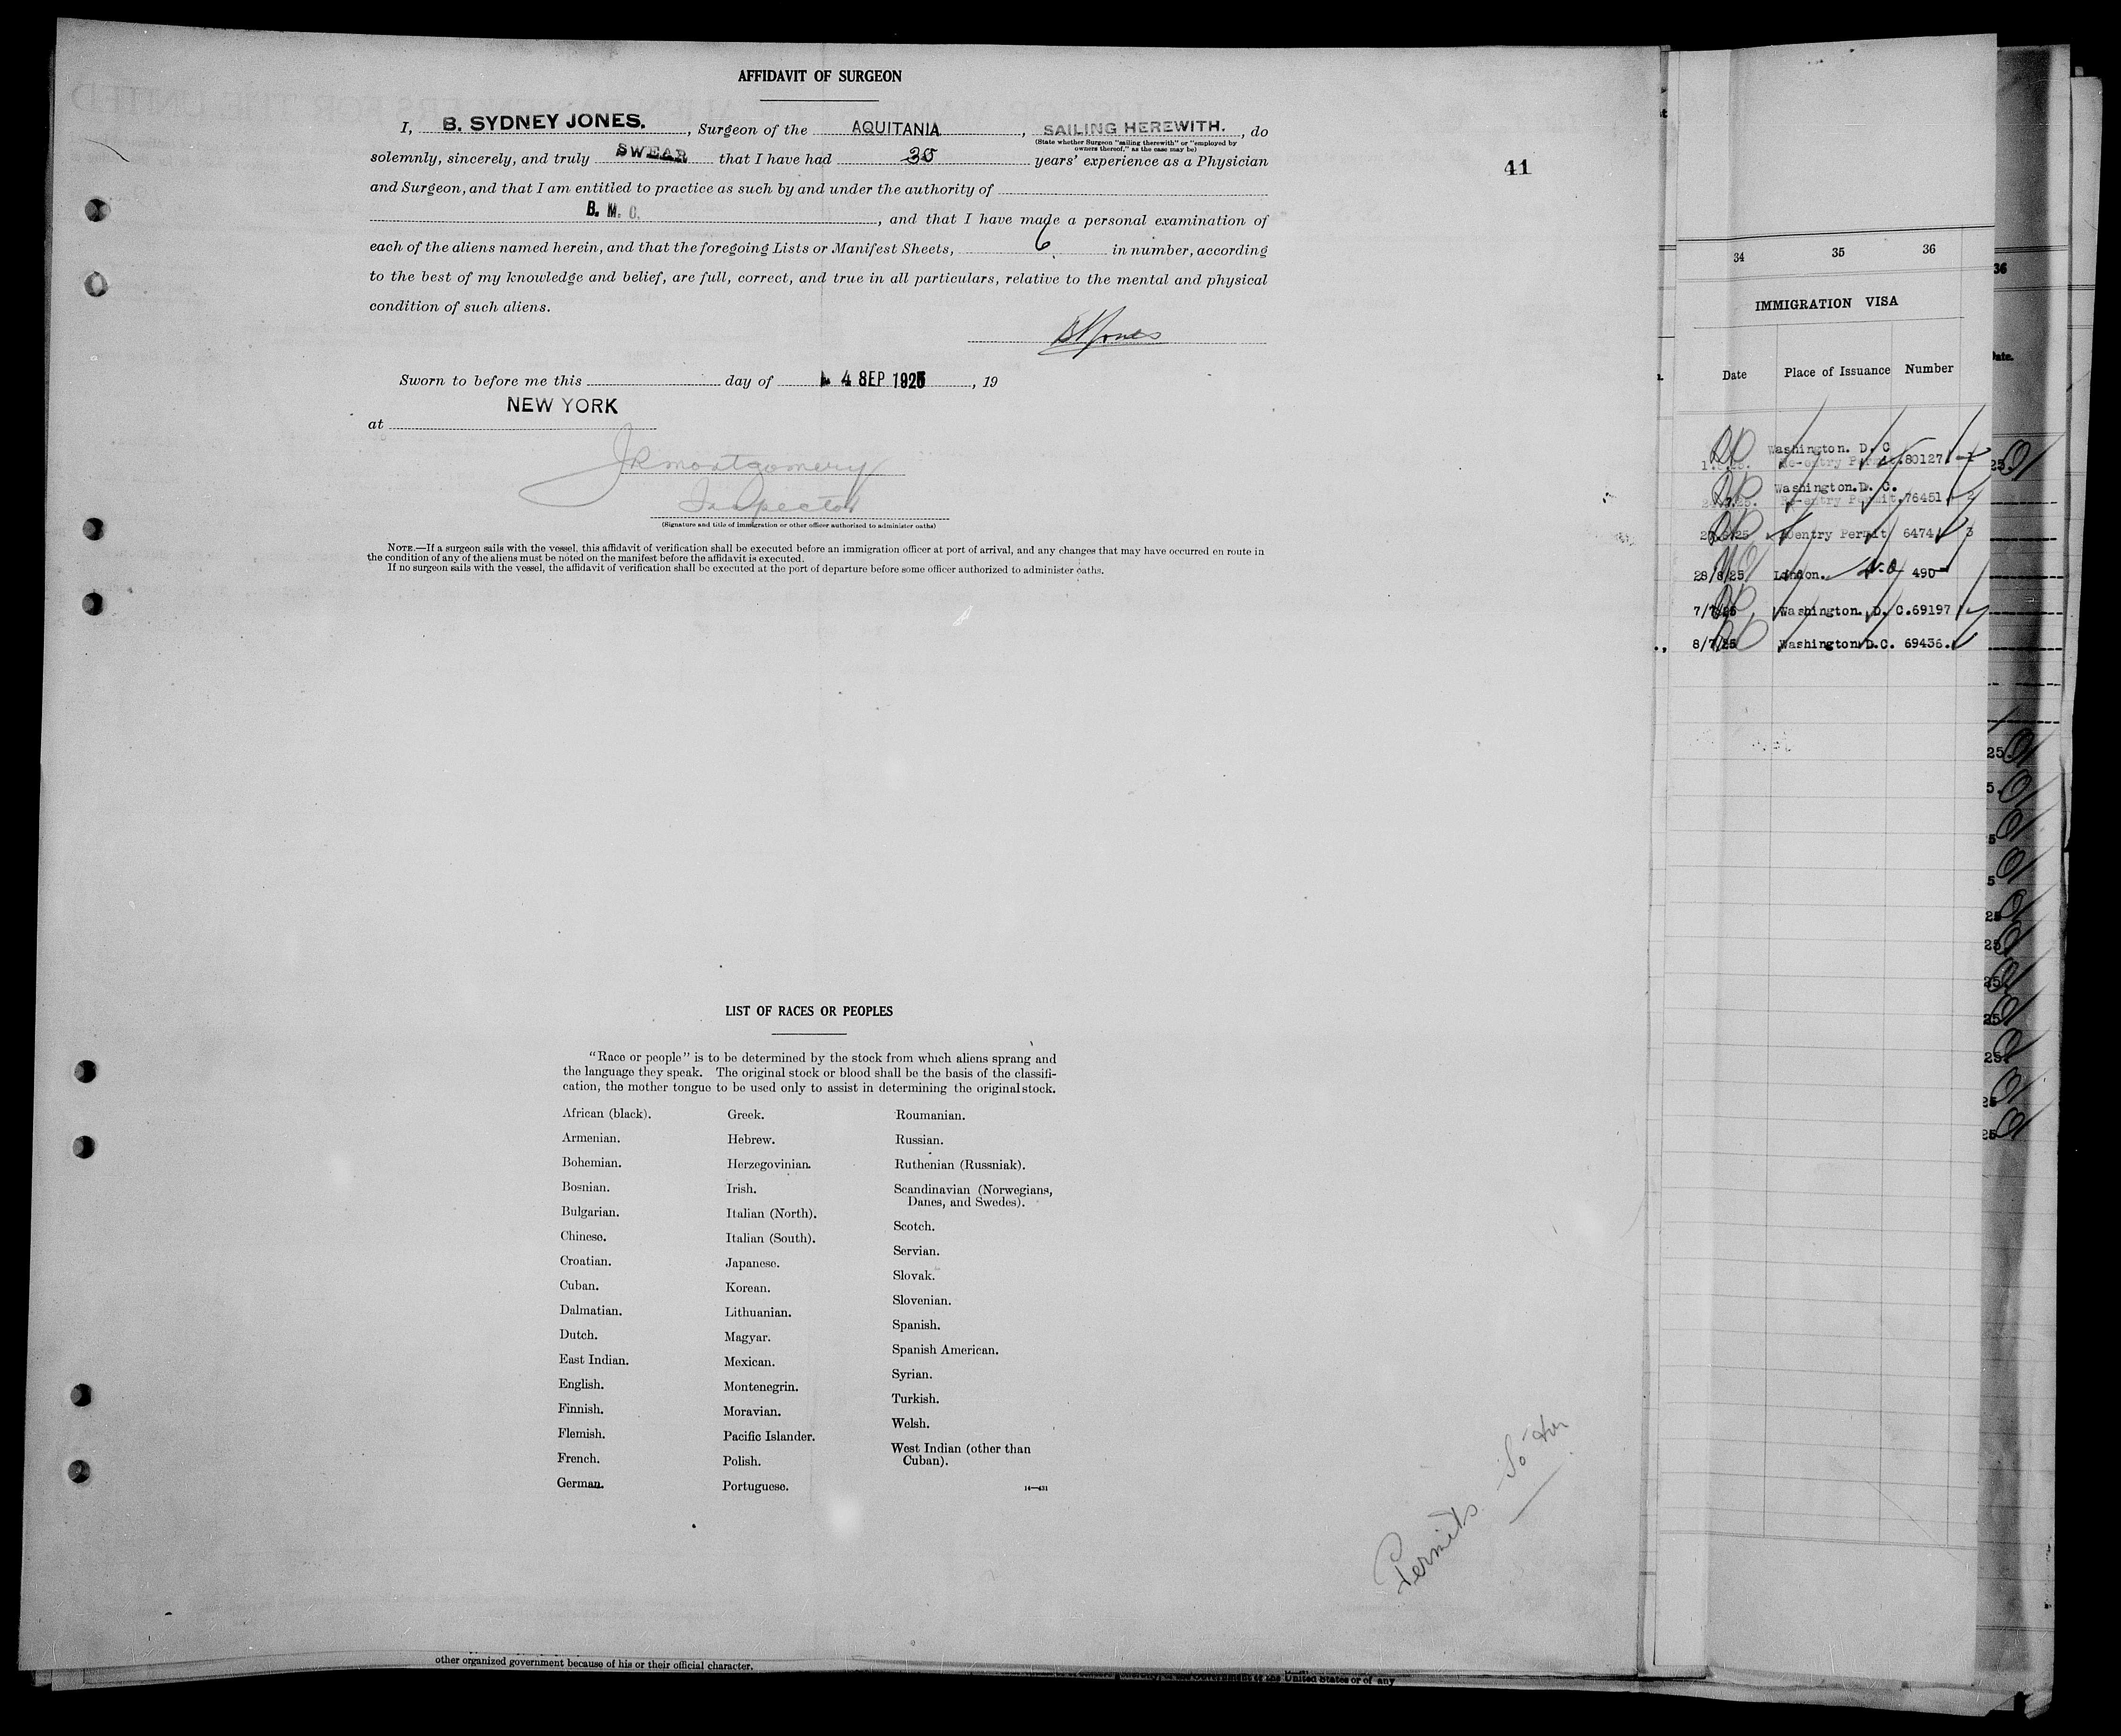 AFFIDAVIT OF SURGEON
I, B. SYDNEY JONES., Surgeon of the AQUITANIA, SAILING HEREWITH., do
(State whether Surgeon "sailing therewith" or "employed by
owners thereof," as the case may be)
solemnly, sincerely, and truly SWEAR that I have had 30 years' experience as a Physician
41
and Surgeon, and that I am entitled to practice as such by and under the authority of
B. M. C., and that I have made a personal examination of
each of the aliens named herein, and that the foregoing Lists or Manifest Sheets, 6 in number, according
to the best of my knowledge and belief, are full, correct, and true in all particulars, relative to the mental and physical
condition of such aliens.
BSJones
Sworn to before me this day of 4 SEP 1925, 19
NEW YORK
at
JRMontgomery
Inspector
(Signature and title of immigration or other officer authorized to administer oaths)
NOTE.—If a surgeon sails with the vessel, this affidavit of verification shall be executed before an immigration officer at port of arrival, and any changes that may have occurred en route in
the condition of any of the aliens must be noted on the manifest before the affidavit is executed.
If no surgeon sails with the vessel, the affidavit of verification shall be executed at the port of departure before some officer authorized to administer oaths.
LIST OF RACES OR PEOPLES
"Race or people" is to be determined by the stock from which aliens sprang and
the language they speak. The original stock or blood shall be the basis of the classifi-
cation, the mother tongue to be used only to assist in determining the original stock.
African (black).
Armenian.
Bohemian.
Bosnian.
Bulgarian.
Chinese.
Croatian.
Cuban.
Dalmatian.
Dutch.
East Indian.
English.
Finnish.
Flemish.
French.
German.
Greek.
Hebrew.
Herzegovinian.
Irish.
Italian (North).
Italian (South).
Japanese.
Korean.
Lithuanian.
Magyar.
Mexican.
Montenegrin.
Moravian.
Pacific Islander.
Polish.
Portuguese.
Roumanian.
Russian.
Ruthenian (Russniak).
Scandinavian (Norwegians,
Danes, and Swedes).
Scotch.
Servian.
Slovak.
Slovenian.
Spanish.
Spanish American.
Syrian.
Turkish.
Welsh.
West Indian (other than
Cuban).
14—431
Permits
other organized government because of his or their official character.
United States or of any
34 35 36
IMMIGRATION VISA
Date Place of Issuance Number
Washington. D. C
Re-entry Permit. 80127. 1
Washington. D. C.
Re-entry Permit. 76451. 2
Reentry Permit 6474 3
28/8/25 London. 490
7/7/25 Washington. D. C. 69197
8/7/25 Washington D.C. 69436.
36
Date.
25
25.
5.
5
5
25
25
25.
25
25.
25
25